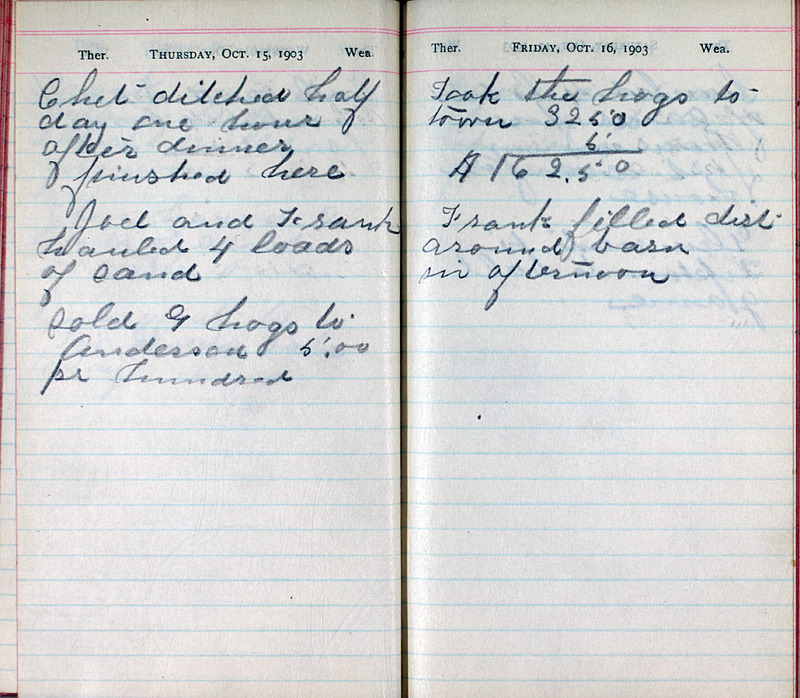 Ther. THURSDAY, OCT. 15, 1903 Wea.
Chet ditched half
day one hour
after dinner
finished here
Joel and Frank
hauled 4 loads
of sand
sold 9 hogs to
Anderson 5.00
pr hundred
Ther. FRIDAY, OCT. 16, 1903 Wea.
Took the hogs to
town 3250
5
162.50
Frank filled dirt
around barn
in afternoon